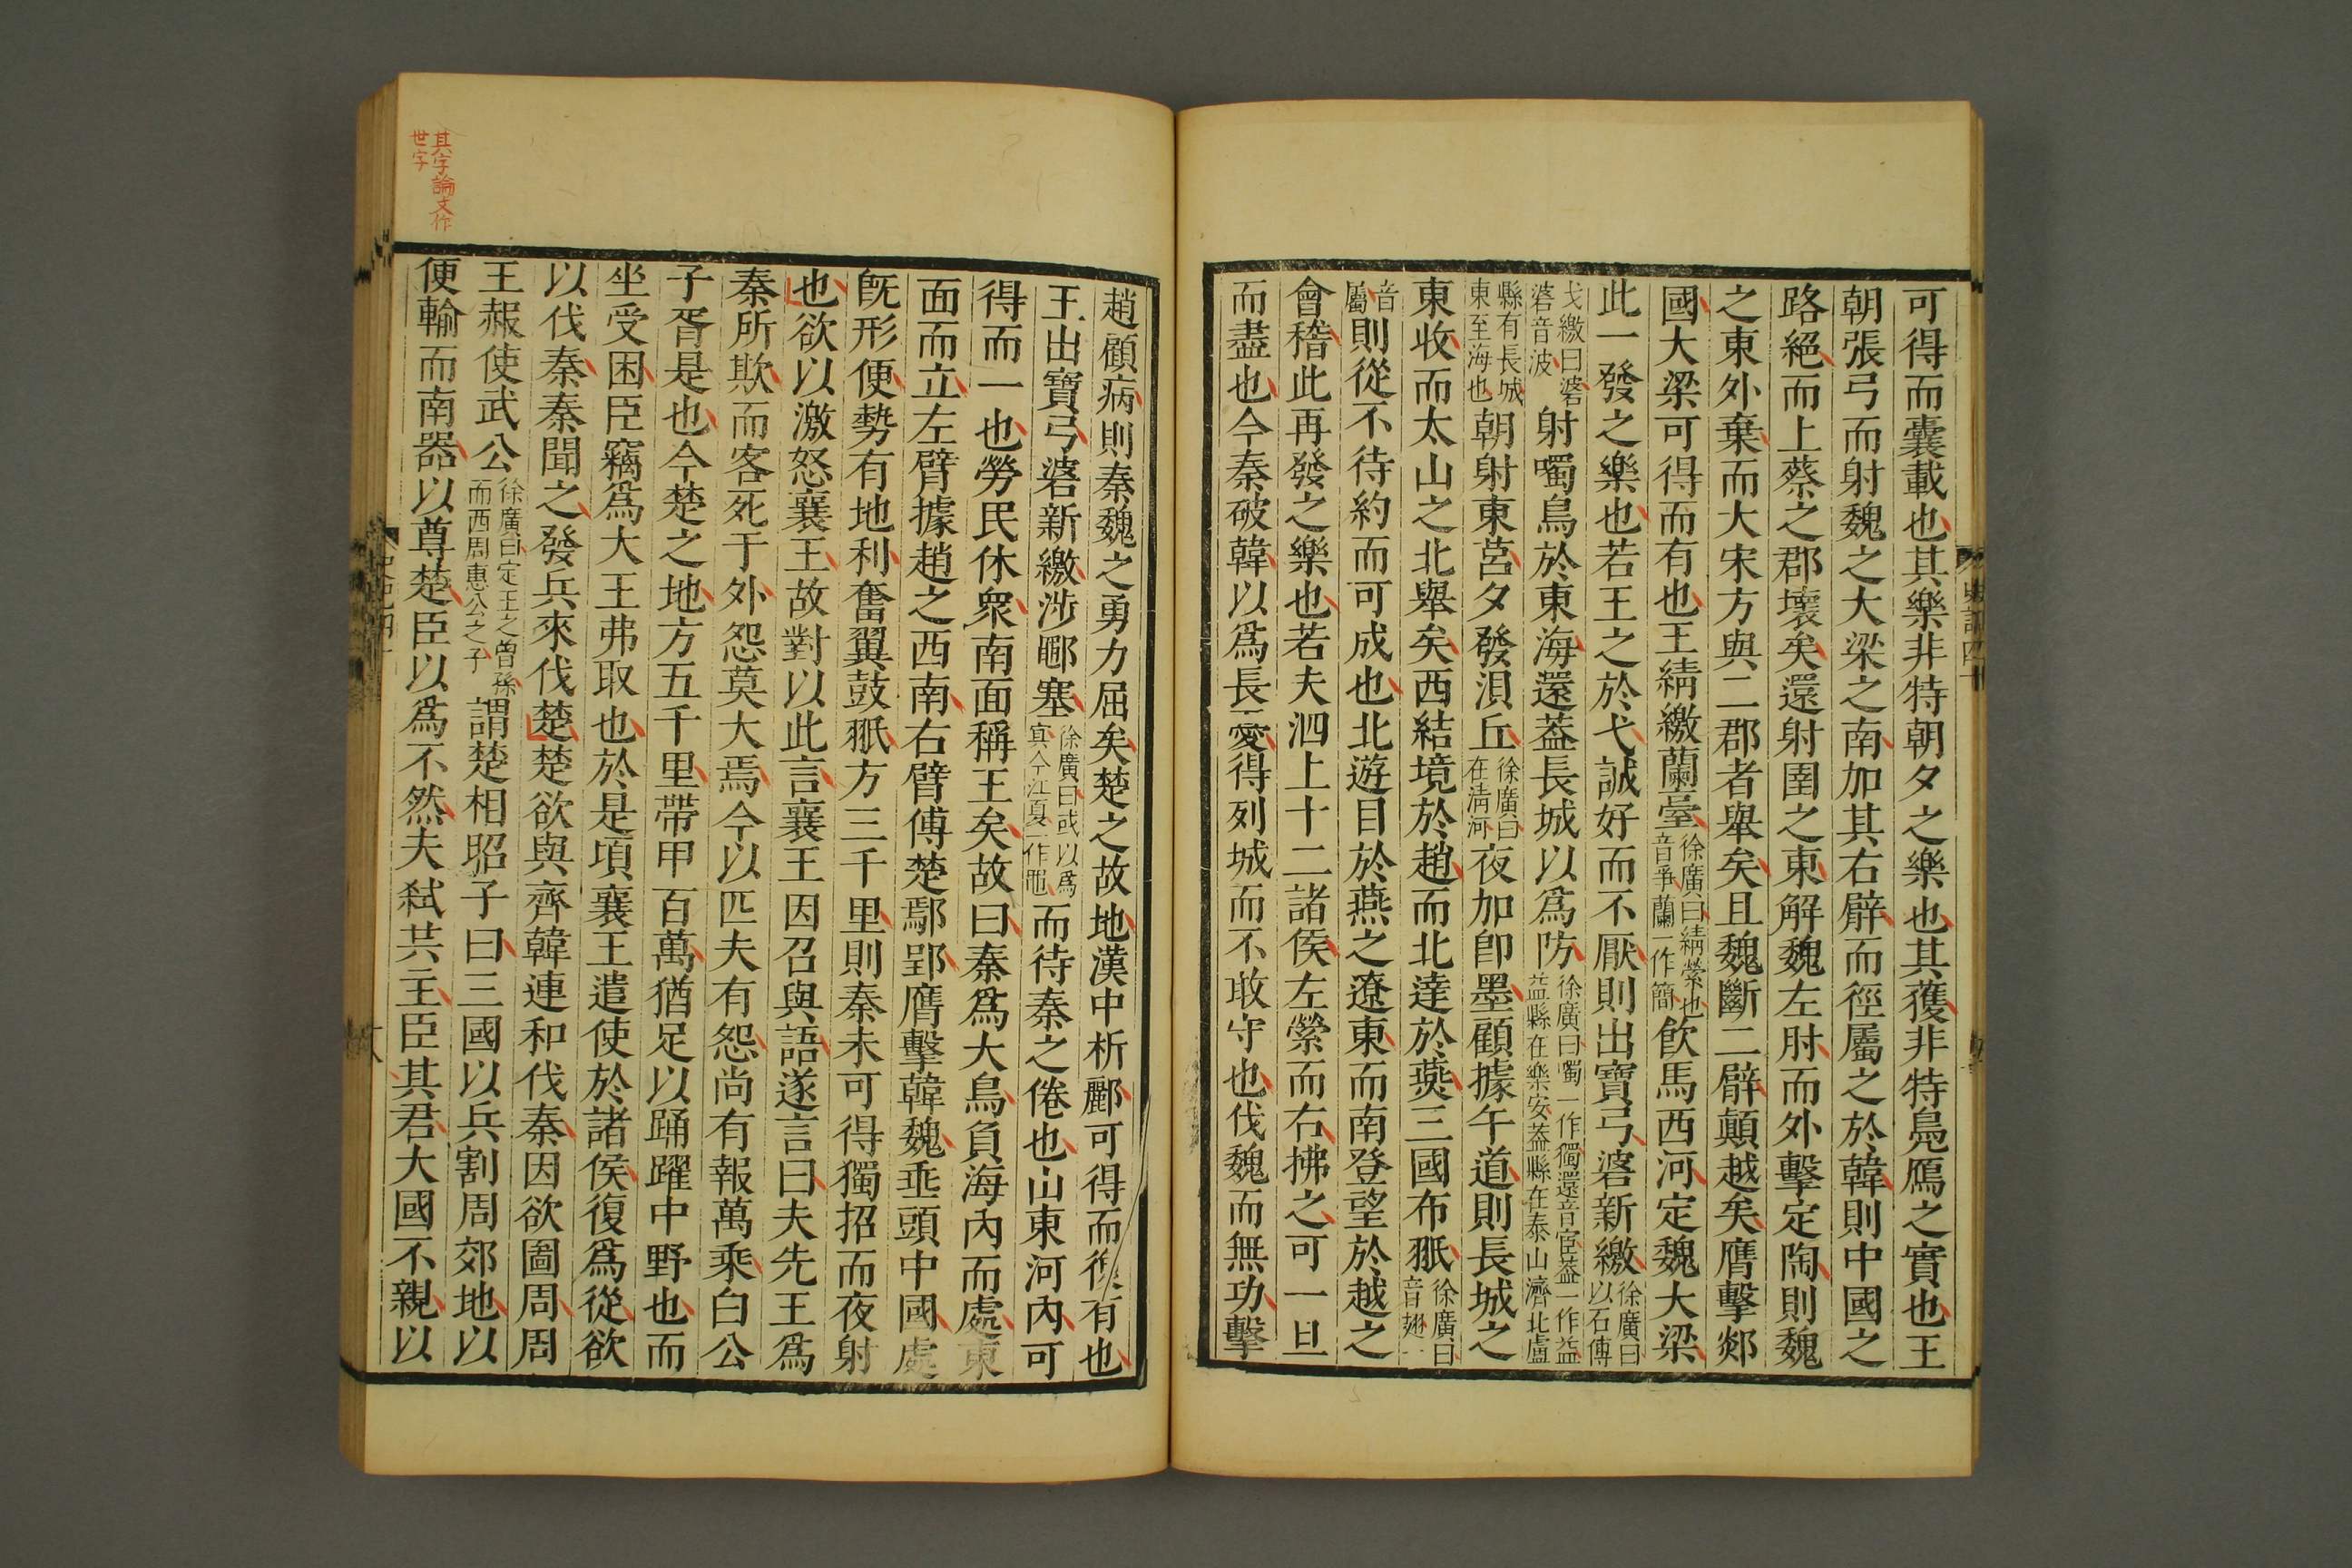 可得而囊載也其樂非特朝夕之樂也其獲非特鳧鴈之實也王
朝張弓而射魏之大梁之南加其右臂而徑屬之於韓則中國之
路絕而上蔡之郡壞矣還射圉之東解魏左肘而外擊定陶則魏
之東外棄而大宋方與二郡者舉矣且魏斷二臂顛越矣膺擊郯
國大梁可得而有也王綪繳蘭臺徐廣曰綪縈也音爭蘭一作簡飲馬西河定魏大梁
此一發之樂也若王之於弋誠好而不厭則出寶弓碆新繳徐廣曰以石傅
弋繳曰碆碆音波射噣鳥於東海還蓋長城以爲防徐廣曰噣一作獨還音宦蓋一作益益縣在樂安蓋縣在泰山濟北盧
縣有長城東至海也朝射東莒夕發浿丘徐廣曰在清河夜加卽墨顧據午道則長城之
東收而太山之北舉矣西結境於趙而北達於燕三國布𦐊徐廣曰音翅一
音屬則從不待約而可成也北遊目於燕之遼東而南登望於越之
會稽此再發之樂也若夫泗上十二諸侯左縈而右拂之可一旦
而盡也今秦破韓以爲長憂得列城而不敢守也伐魏而無功擊
史記四十
趙顧病則秦魏之勇力屈矣楚之故地漢中析酈可得而復有也
王出寶弓碆新繳涉鄳塞徐廣曰或以爲冥今江夏一作黽而待秦之倦也山東河內可
得而一也勞民休衆南面稱王矣故曰秦爲大鳥負海內而處東
面而立左臂據趙之西南右臂傅楚鄢郢膺擊韓魏垂頭中國處
旣形便勢有地利奮翼鼓𦐊方三千里則秦未可得獨招而夜射
也欲以激怒襄王故對以此言襄王因召與語遂言曰夫先王爲
秦所欺而客死于外怨莫大焉今以匹夫有怨尚有報萬乘白公
子胥是也今楚之地方五千里帶甲百萬猶足以踊躍中野也而
坐受困臣竊爲大王弗取也於是頃襄王遣使於諸侯復爲從欲
以伐秦秦聞之發兵來伐楚楚欲與齊韓連和伐秦因欲圖周周
王赧使武公徐廣曰定王之曾孫而西周惠公之子謂楚相昭子曰三國以兵割周郊地以
便輸而南器以尊楚臣以爲不然夫弒共主臣其君大國不親以
其字論文作
世字